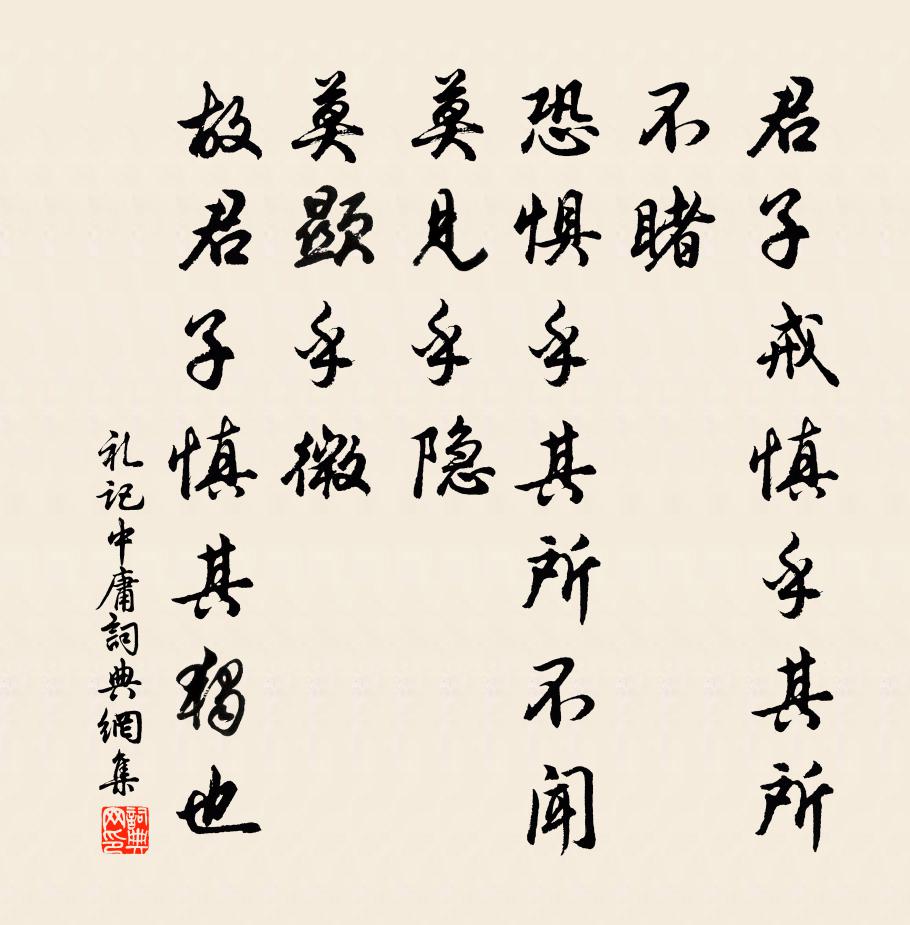 君子戒慎乎其所
不睹
恐惧乎其所不闻
莫见乎隐
莫显乎微
故君子慎其独也
礼记中庸詞典網集
詞典
网印